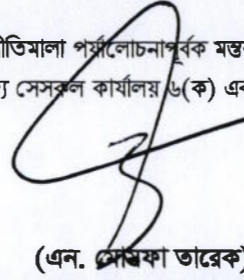 নীতিমালা পর্যালোচনাপূর্বক মন্তব
্য সেসকল কার্যালয় ৬(ক) এব
(এন. মোস্তফা তারেক)